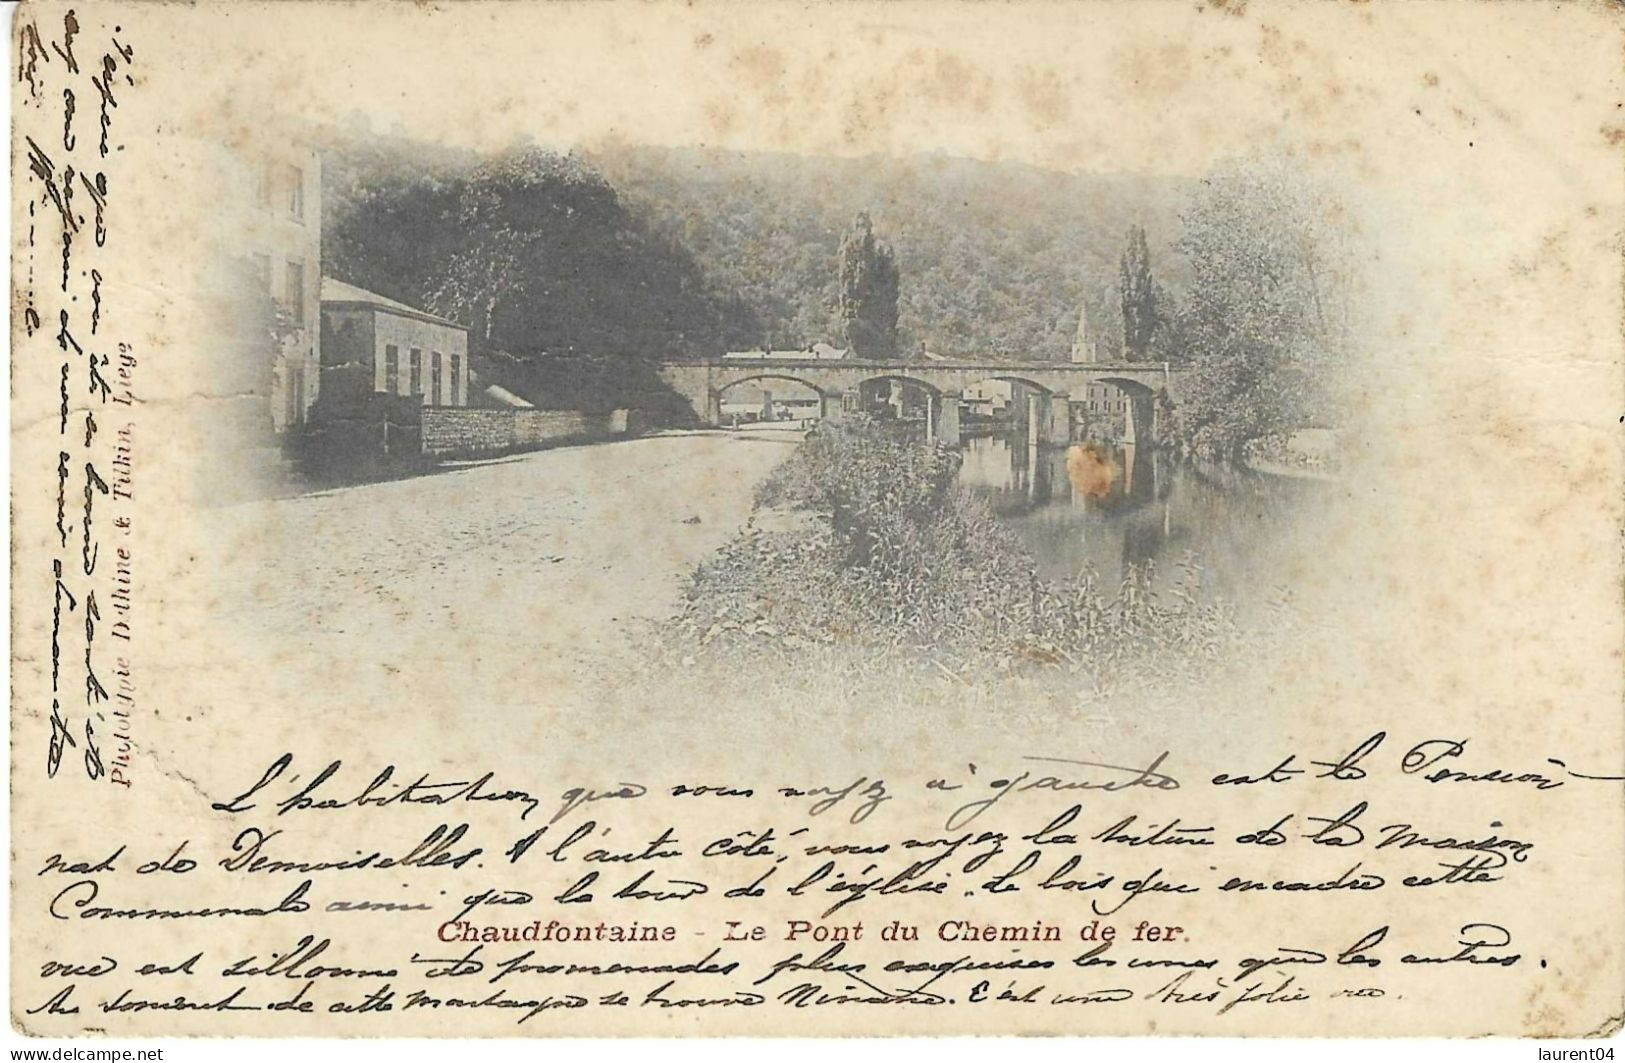 J'espère que vou ête en bonne santé et
me réjoui de vou venir dimanche
Phototypie Dethine & Tilkin, Liège
L'habitation que vous voyez à gauche est le Pension
nat de Demoiselles. A l'autre côté, vous voyez la toiture de la Maison
Communale ainsi que la tour de l'église. Le bois qui encadre cette
Chaudfontaine - Le Pont du Chemin de fer.
vue est sillonné de promenades plus exquises les unes que les autres.
Au sommet de cette montagne se trouve Ninane. C'est une très jolie vue.
www.delcampe.net
laurent04